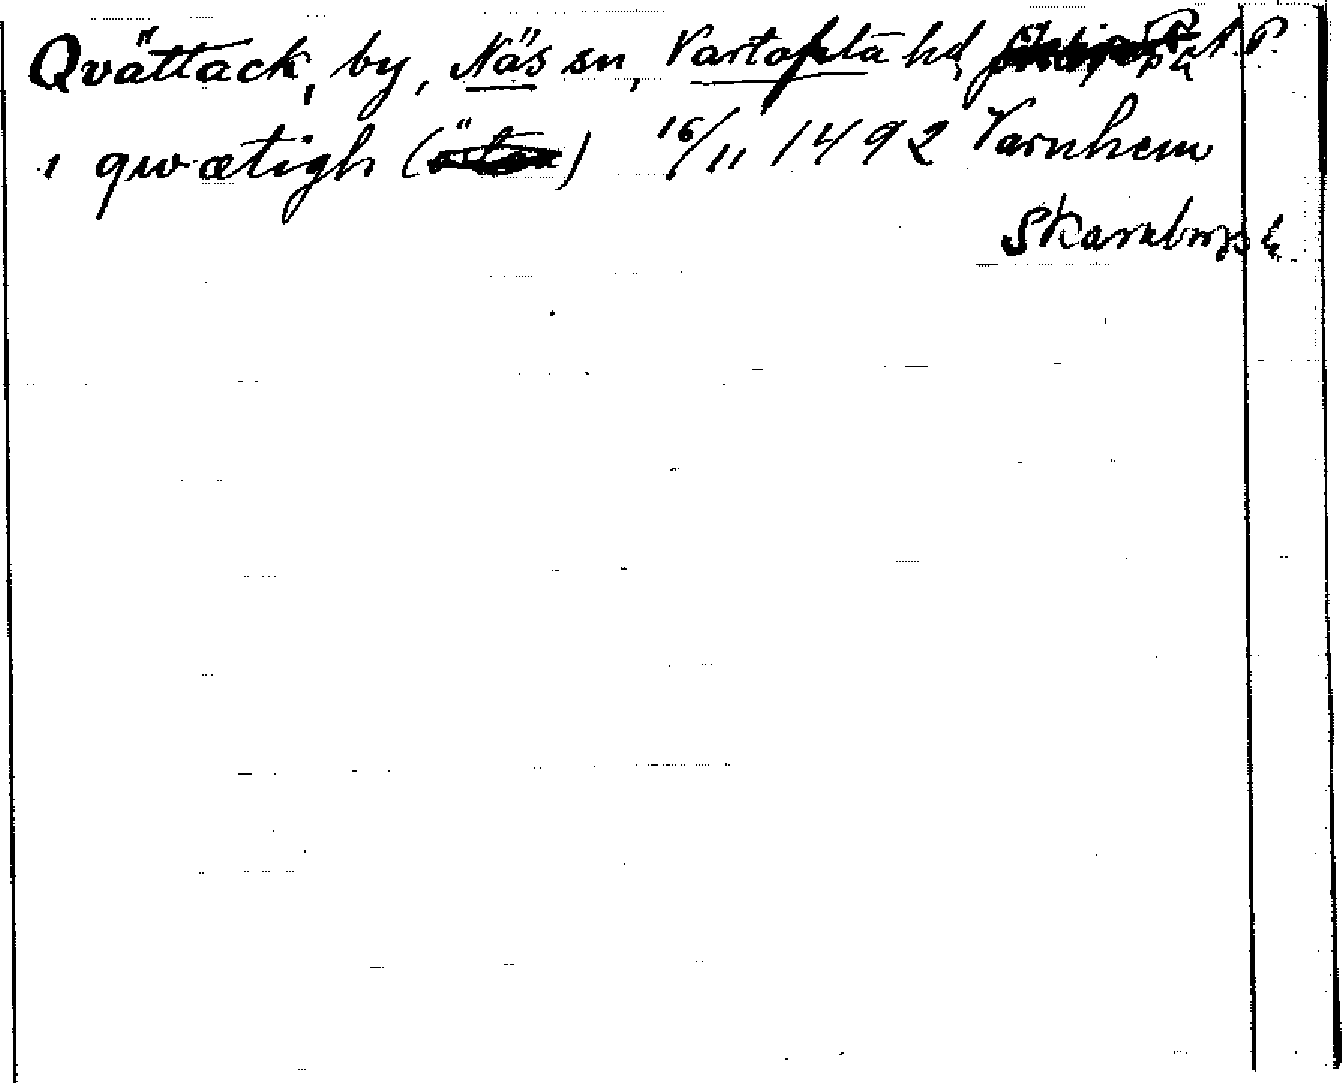 Qvättack, by, Näs sn, Vartofta hd, RAP.
i qwætigh ( ) 16/11 1492 Varnhem
Skaraborgs l.